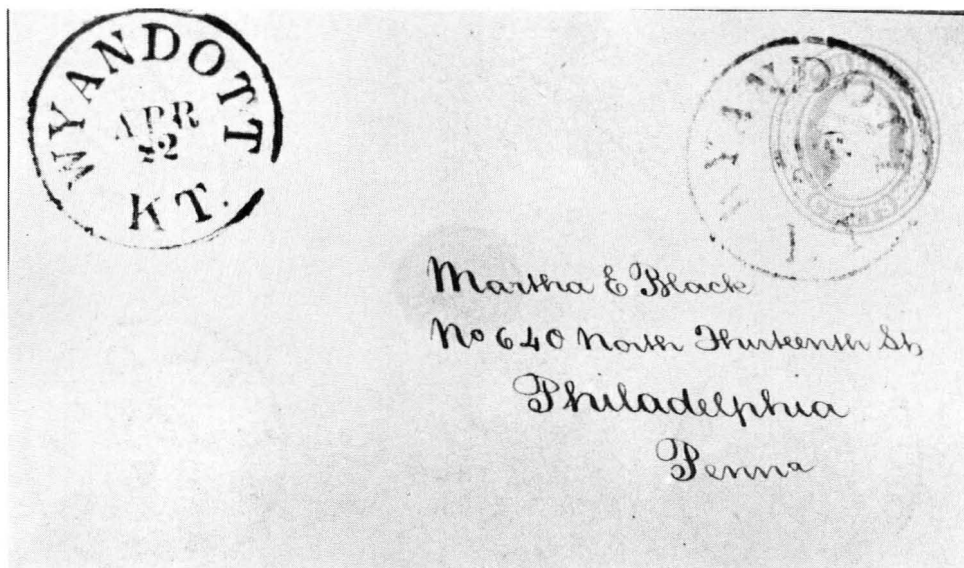 WYANDOTT
APR
22
KT.
WYANDOTT
Martha E Black
No 640 North Thirteenth St,
Philadelphia
Penna